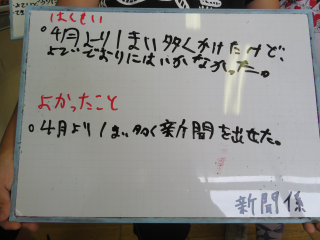 はんせい
○4月より1まい多くかけたけど、
よていどおりにはいかなかった。
よかったこと
○4月より1まい多く新聞を出せた。
新聞係